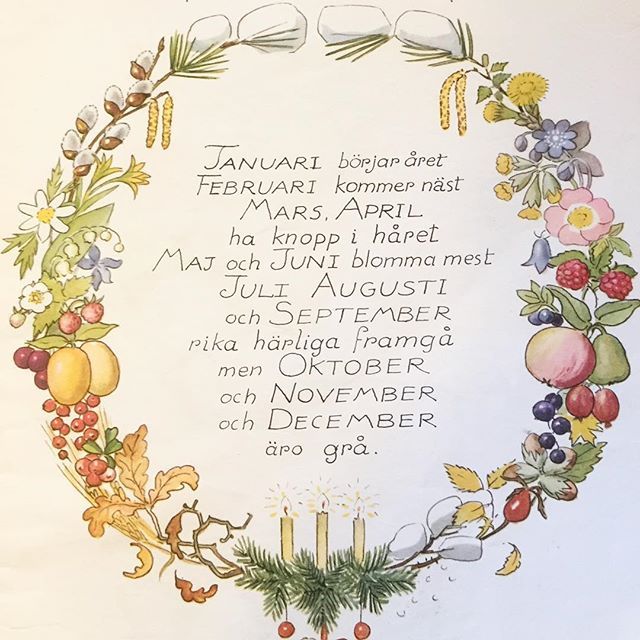 JANUARI börjar året
FEBRUARI kommer näst
MARS, APRIL
ha knopp i håret
MAJ och JUNI blomma mest
JULI AUGUSTI
och SEPTEMBER
rika härliga framgå
men OKTOBER
och NOVEMBER
och DECEMBER
äro grå.